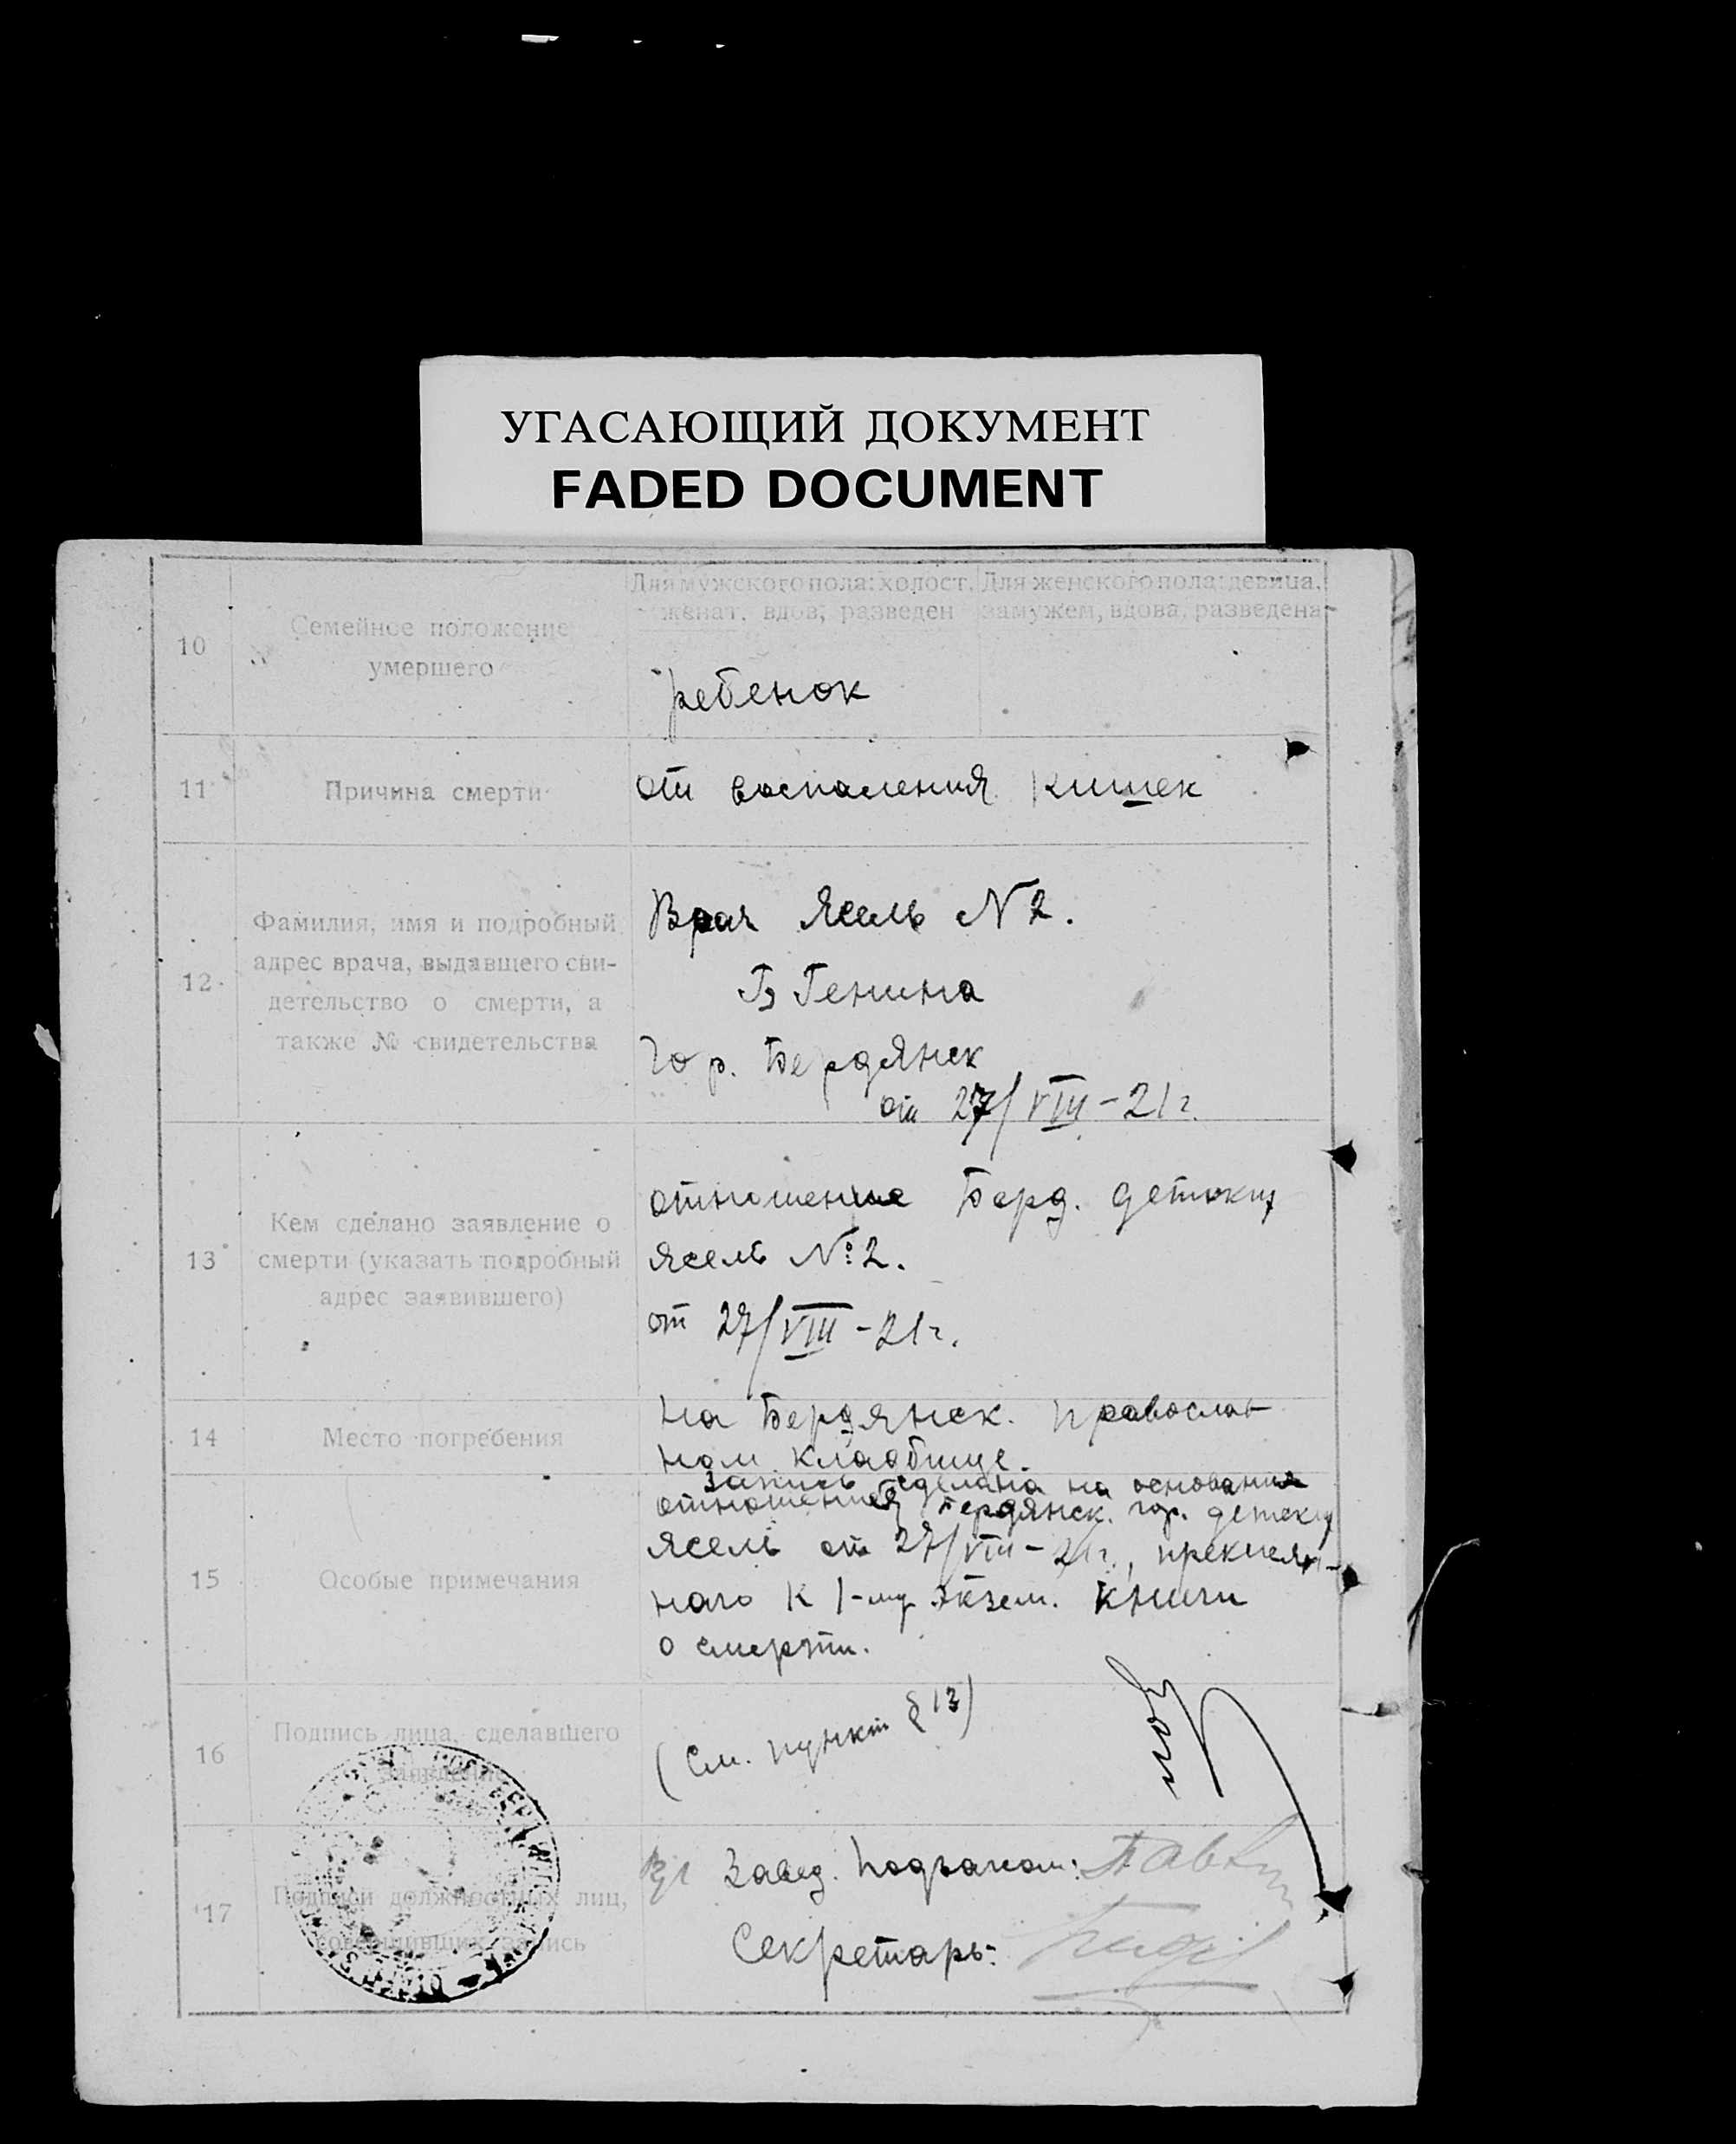 УГАСАЮЩИЙ ДОКУМЕНТ
FADED DOCUMENT
Для мужского пола: холост,
женат, вдов, разведен
Для женского пола: девица,
замужем, вдова, разведена
10
Семейное положение
умершего
ребенок
11
Причина смерти
от воспаления кишек
12
Фамилия, имя и подробный
адрес врача, выдавшего сви-
детельство о смерти, а
также № свидетельства
Врач Ясель N 2.
Генина
Гор. Бердянск
от 27/VIII-21 г.
13
Кем сделано заявление о
смерти (указать подробный
адрес заявившего)
отношение Берд. детских
ясель №2.
от 27/VIII-21 г.
14
Место погребения
на Бердянск. православ
ном кладбище.
15
Особые примечания
Запись сделана на основания
отношения Бердянск. гор. детских
ясель от 27/VIII-21 г.,
ного к 1-му экзем. книги
о смерти.
16
Подпись лица, сделавшего
заявление
(См. пункт § 13)
17
Подписи должностных лиц,
совершивших запись
Завед. Подзагом:
Секретарь: